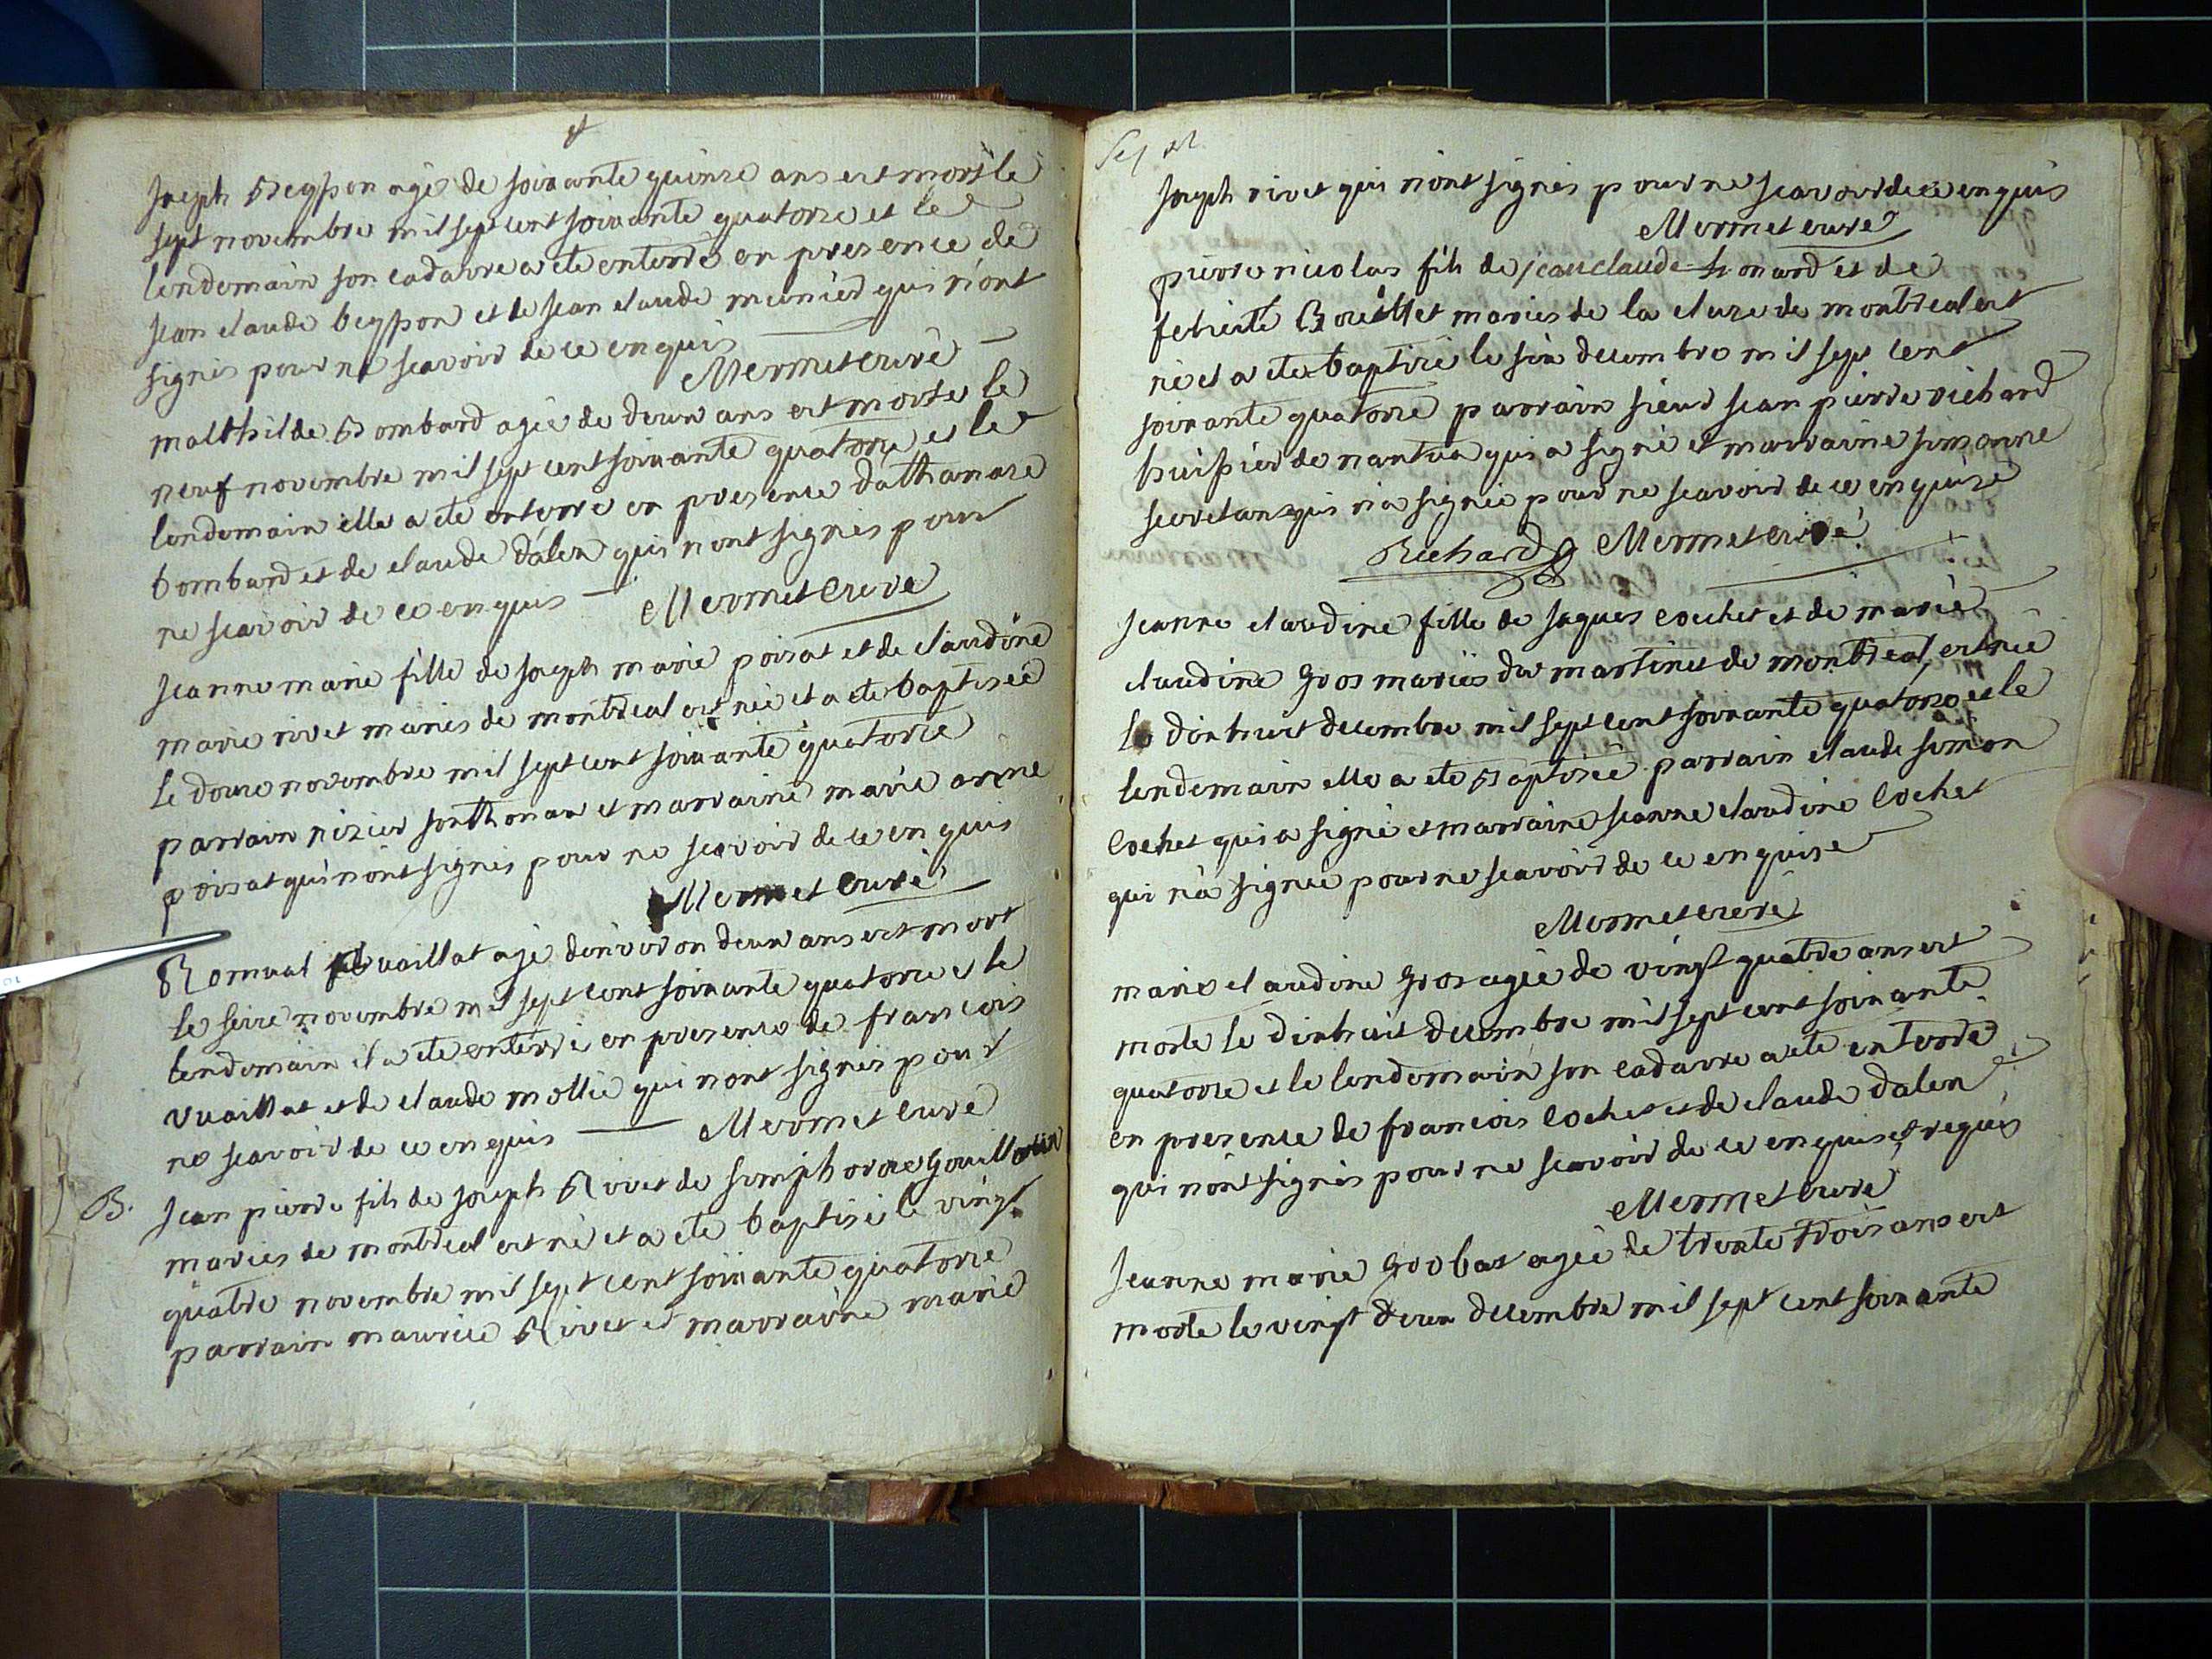 Joseph Beysson agé de soixante quinze ans est mort le
sept novembre mil sept cent soixante quatorze et le
lendemain son cadavre a ete enterré en presence de
Jean claude beysson et de jean claude meunier qui n'ont
signés pour ne scavoir de ce enquis
Mermet curé
malthilde Bombard agée de deux ans est morte le
neuf novembre mil sept cent soixante quatorze et le
lendemain elle a ete enterré en presence d'atthanase
bombard et de claude dalen qui n'ont signés pour
ne scavoir de ce enquis
Mermet curé
Jeanne marie fille de joseph marie poisat et de claudine
marie rivet mariés de montreal est née et a ete baptisée
le douze novembre mil sept cent soixante quatorze
parrain nizier sonthonax et marraine marie anne
poisat qui n'ont signés pour ne scavoir de ce enquis
Mermet curé
Romual vuaillat agé d'environ deux ans est mort
le seize novembre mil sept cent soixante quatorze et le
lendemain il a ete enterré en presence de francois
vuaillat et de claude mollie qui n'ont signés pour
ne scavoir de ce enquis
Mermet curé
B. Jean pierre fils de joseph Rivet de simphorose gouilloux
mariés de montreal est né et a ete baptisé le vingt
quatre novembre mil sept cent soixante quatorze
parrain maurice Rivet et marraine marie
Joseph rivet qui n'ont signés pour ne scavoir de ce enquis
Mermet curé
pierre nicolas fils de jean claude honard et de
felicité Bouillet mariés de la cluze de montreal est
né et a ete baptizé le six decembre mil sept cent
soixante quatorze parrain sieur jean pierre richard
huissier de nantua qui a signé et marraine simonne
secretan qui n'a signée pour ne scavoir de ce enquise
Richard Mermet curé
Jeanne claudine fille de jaques cochet et de marie
claudine gros mariés du martinet de montreal, est née
le dixhuit decembre mil sept cent soixante quatorze et le
lendemain elle a ete Baptisée parrain claude simon
cochet qui a signé et marraine jeanne claudine cochet
qui n'a signée pour ne scavoir de ce enquise
Mermet curé
marie claudine gros agée de vingt quatre ans est
morte le dixhuit decembre mil sept cent soixante
quatorze et le lendemain son cadavre a ete enterré
en presence de francois cochet et de claude dalen
qui n'ont signés pour ne scavoir de ce enquis et requis
Mermet curé
Jeanne marie grobas agée de trente trois ans est
morte le vingt deux decembre mil sept cent soixante